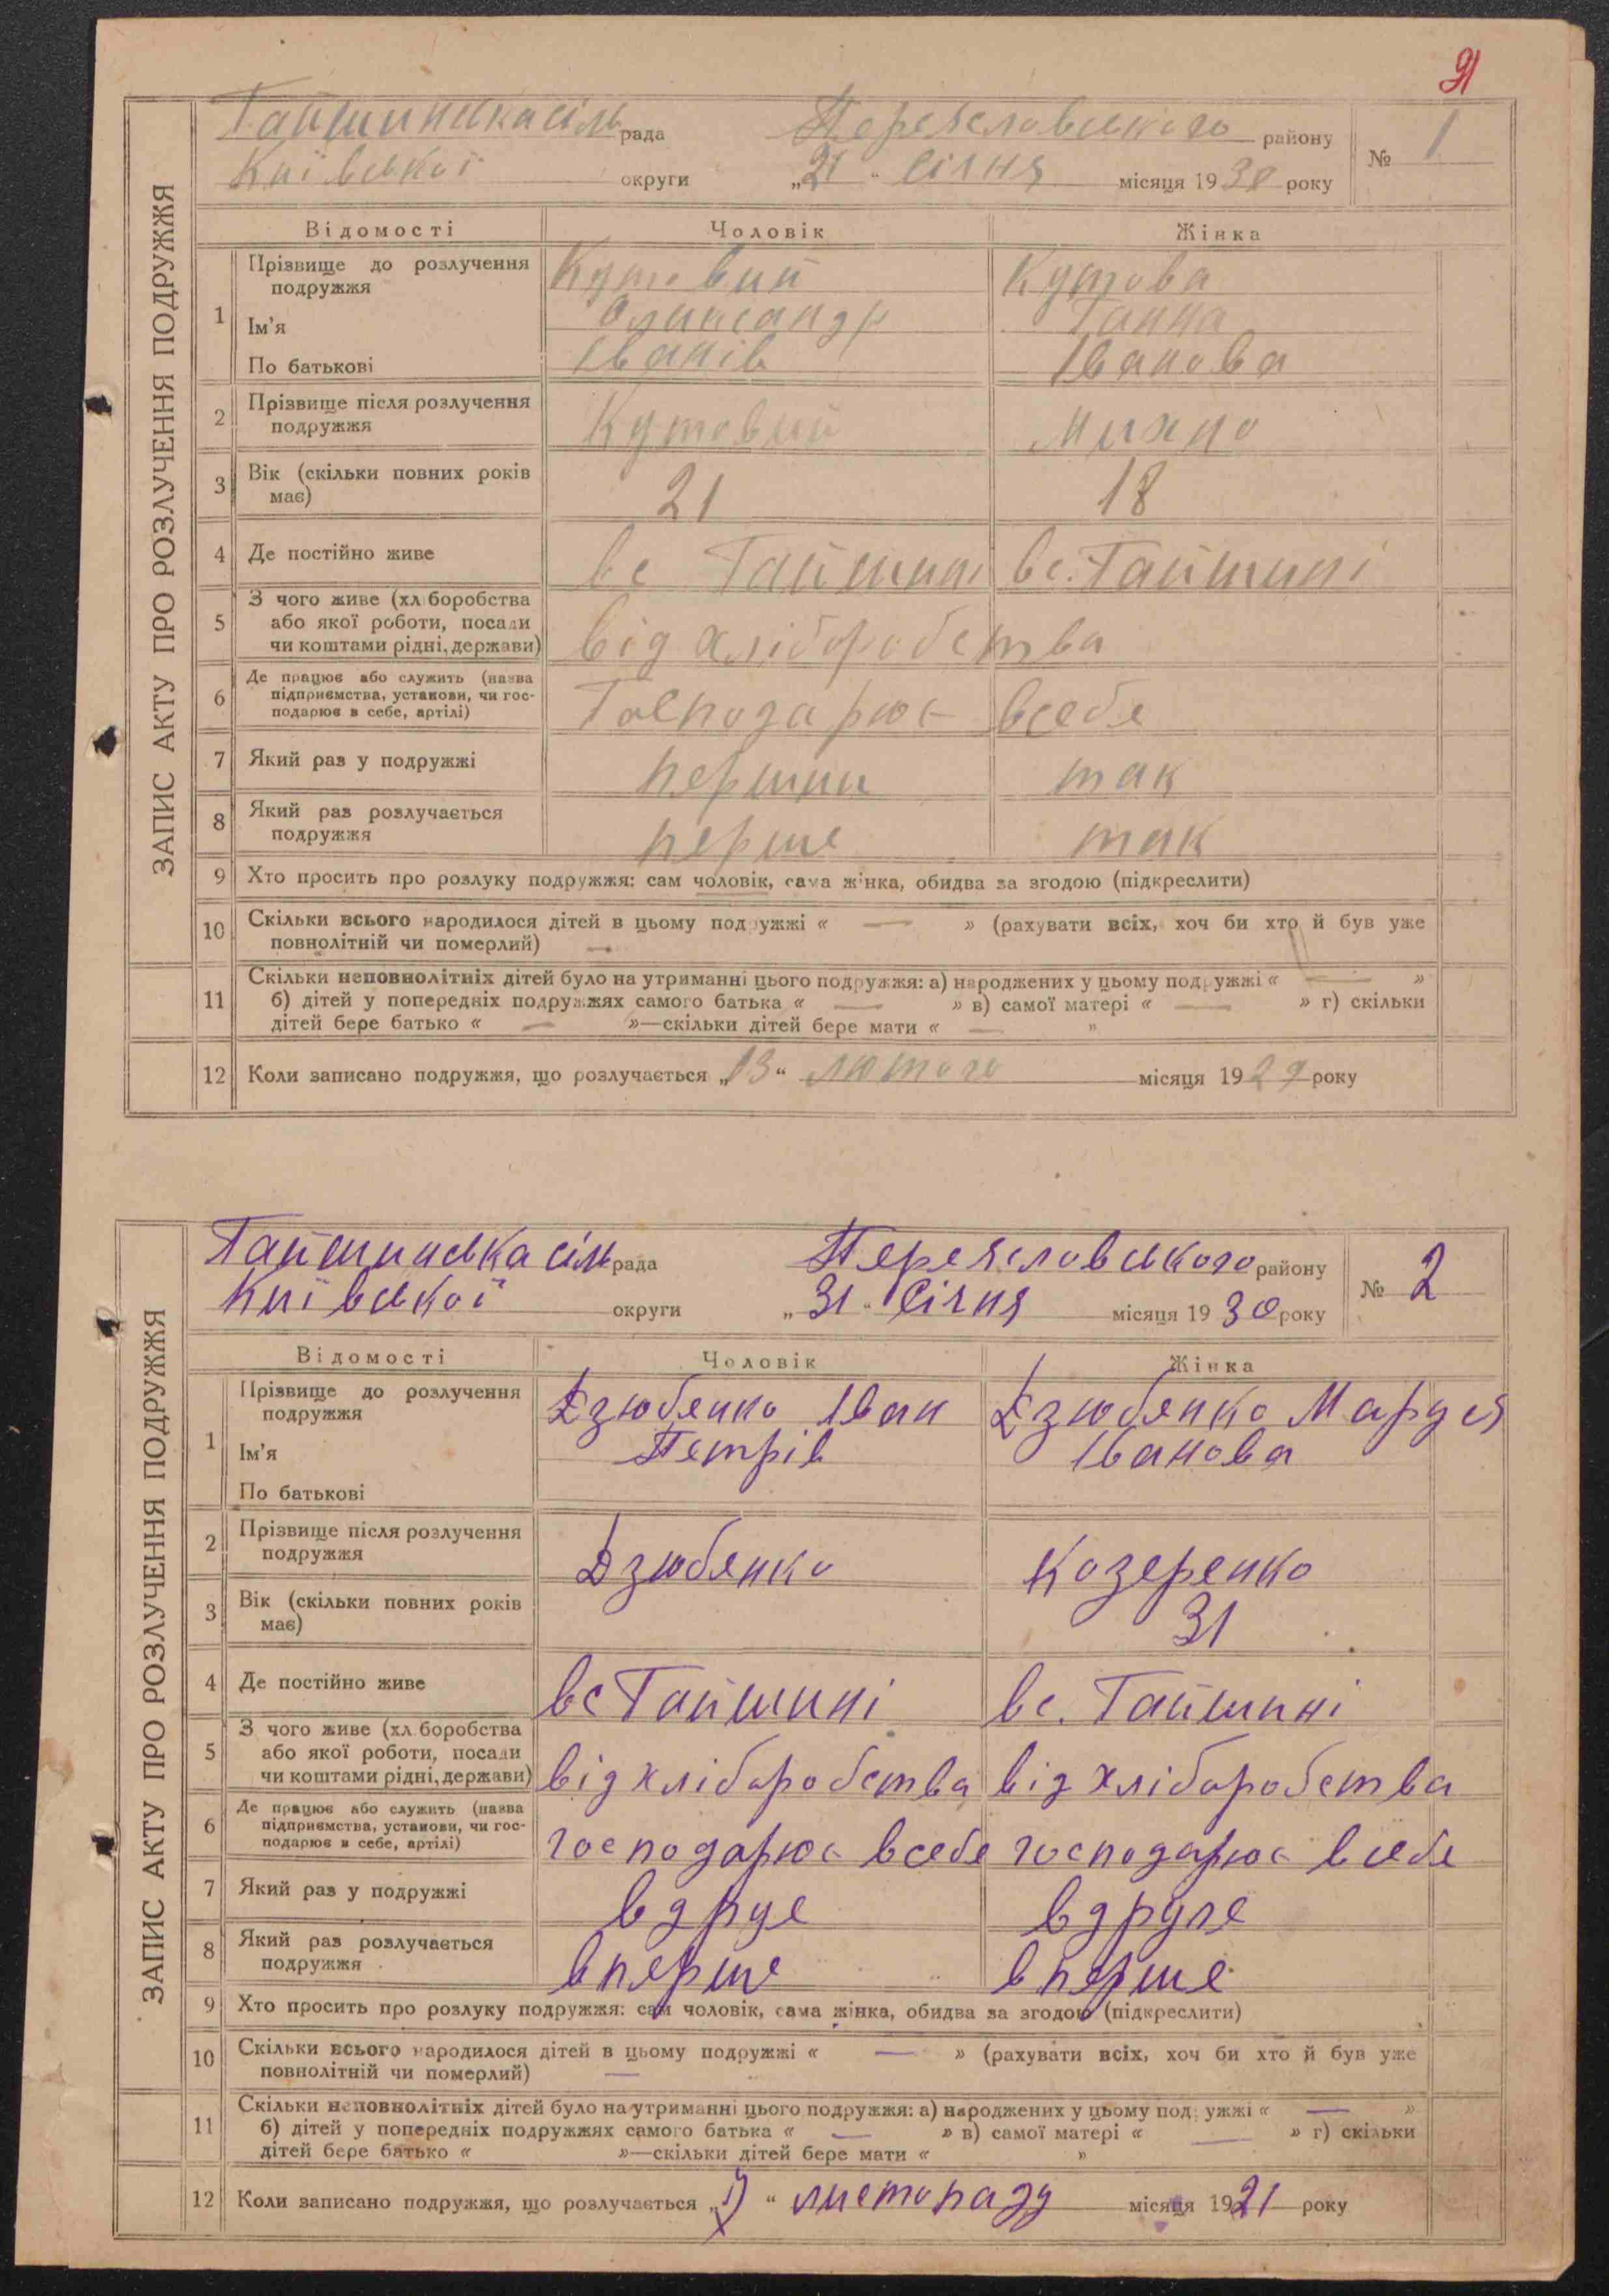 91
ЗАПИС АКТУ ПРО РОЗЛУЧЕННЯ ПОДРУЖЖЯ
Гайшинська сіль рада Переяславського району № 1
Київської округи „21“ Січня місяця 1930 року
Відомості Чоловік Жінка
1 Прізвище до розлучення подружжя Кутовий Кутова
Ім'я Олександр Ганна
По батькові Іванів Іванова
2 Прізвище після розлучення подружжя Кутовий Михно
3 Вік (скільки повних років має) 21 18
4 Де постійно живе вс Гайшині вс. Гайшині
5 З чого живе (хліборобства
або якої роботи, посади
чи коштами рідні, держави) від хліборобства
6 Де працює або служить (назва
підприємства, установи, чи гос-
подарює в себе, артілі) Господарює всебе
7 Який раз у подружжі перший так
8 Який раз розлучається подружжя перше так
9 Хто просить про розлуку подружжя: сам чоловік, сама жінка, обидва за згодою (підкреслити)
10 Скільки всього народилося дітей в цьому подружжі « — » (рахувати всіх, хоч би хто й був уже
повнолітній чи померлий) —
11 Скільки неповнолітніх дітей було на утриманні цього подружжя: а) народжених у цьому подружжі « — »
б) дітей у попередніх подружжях самого батька « — » в) самої матері « — » г) скільки
дітей бере батько « — »—скільки дітей бере мати « — »
12 Коли записано подружжя, що розлучається „13“ лютого місяця 1929 року
ЗАПИС АКТУ ПРО РОЗЛУЧЕННЯ ПОДРУЖЖЯ
Гайшинська сіль рада Переяславського району № 2
Київської округи „31“ Січня місяця 1930 року
Відомості Чоловік Жінка
1 Прізвище до розлучення подружжя Дзюбянко Іван Дзюбянко Маруся
Ім'я Петрів Іванова
По батькові
2 Прізвище після розлучення подружжя Дзюбянко Козеренко
3 Вік (скільки повних років має) 31
4 Де постійно живе вс Гайшині вс. Гайшині
5 З чого живе (хліборобства
або якої роботи, посади
чи коштами рідні, держави) від хліборобства від хліборобства
6 Де працює або служить (назва
підприємства, установи, чи гос-
подарює в себе, артілі) господарює всебе господарює всебе
7 Який раз у подружжі вдруе вдруге
8 Який раз розлучається подружжя вперше вперше
9 Хто просить про розлуку подружжя: сам чоловік, сама жінка, обидва за згодою (підкреслити)
10 Скільки всього народилося дітей в цьому подружжі « — » (рахувати всіх, хоч би хто й був уже
повнолітній чи померлий) —
11 Скільки неповнолітніх дітей було на утриманні цього подружжя: а) народжених у цьому подружжі « — »
б) дітей у попередніх подружжях самого батька « — » в) самої матері « — » г) скільки
дітей бере батько « »—скільки дітей бере мати « »
12 Коли записано подружжя, що розлучається „ “ листопаду місяця 1921 року